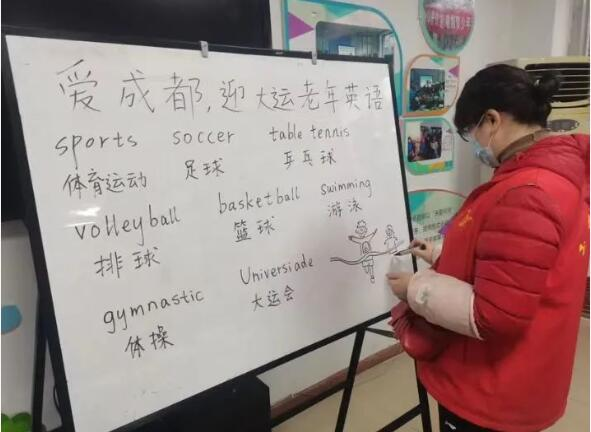 爱成都,迎大运老年英语
sports soccer table tennis
体育运动 足球 乒乓球
volleyball basketball swimming
排球 篮球 游泳
gymnastic Universiade
体操 大运会